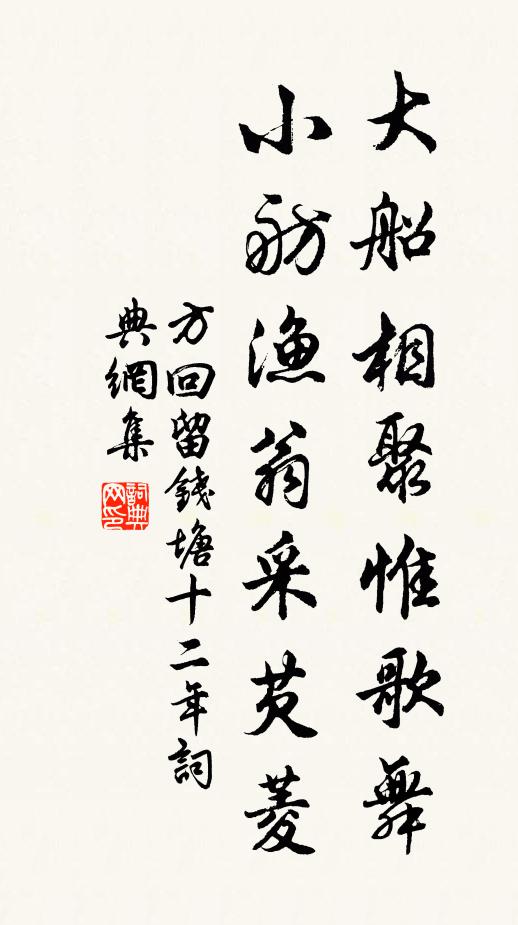 大船相聚惟歌舞
小舫漁翁采芡菱
方回留錢塘十二年詞
典網集
詞典
网印